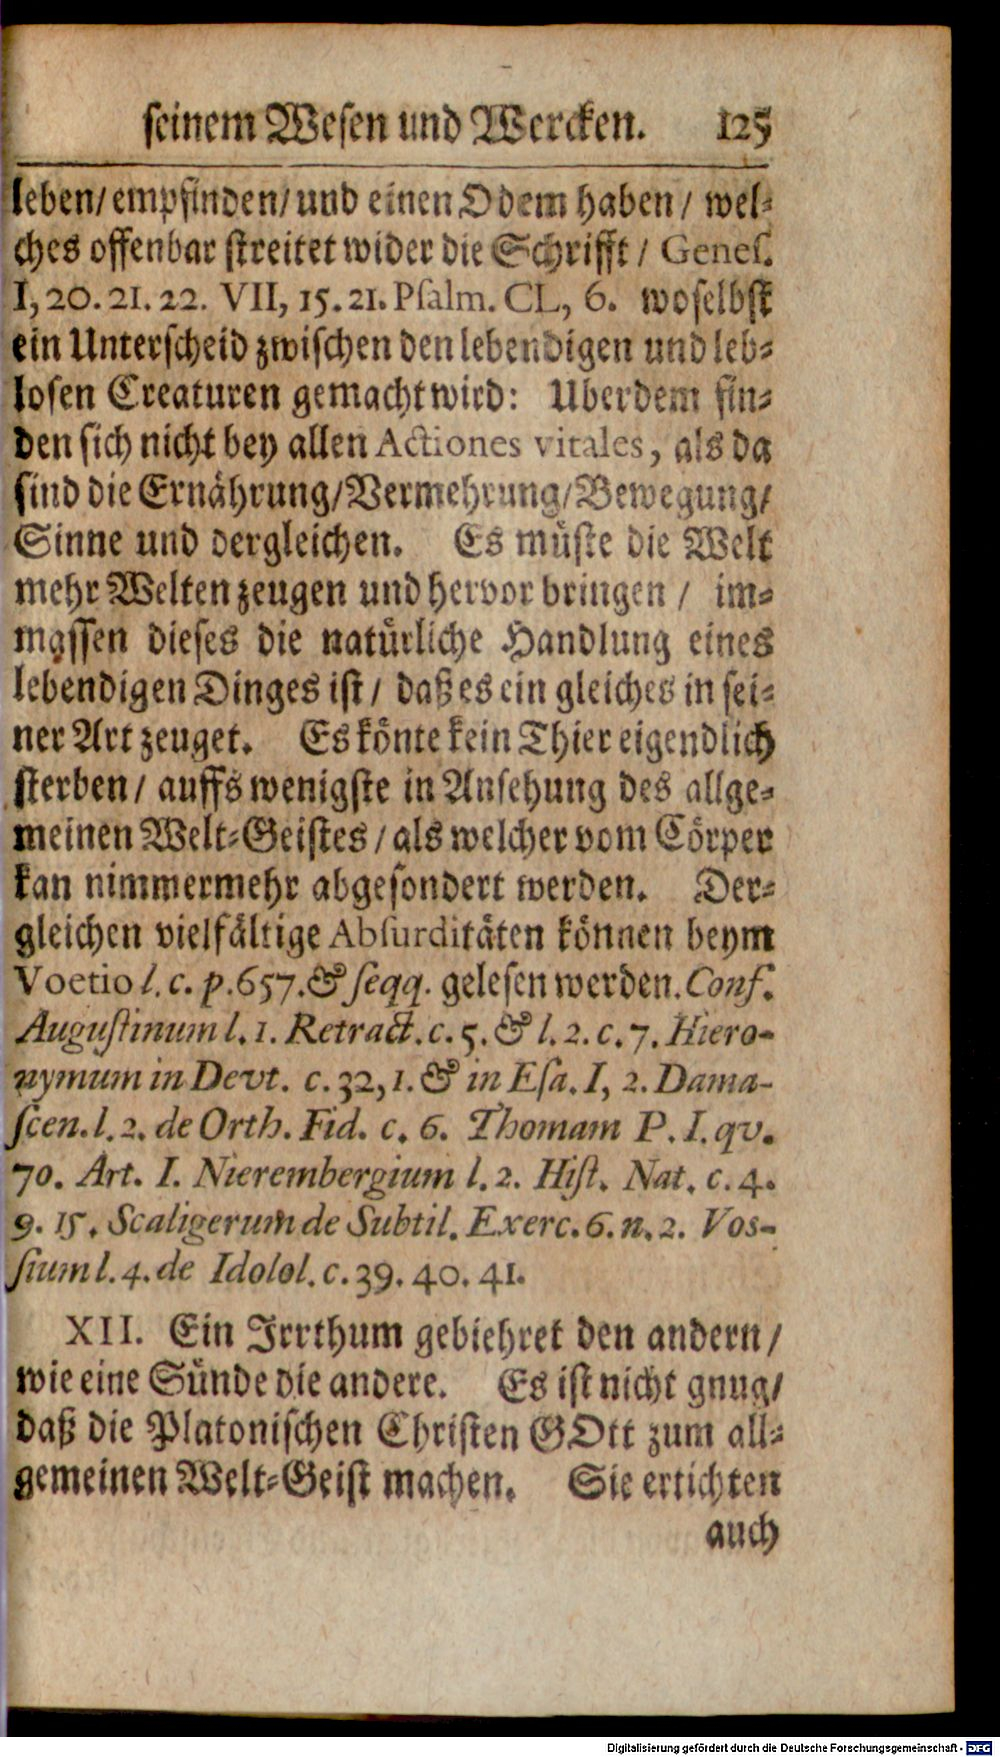 seinem Wesen und Wercken. 125
leben/ empfinden/ und einen Odem haben/ wel-
ches offenbar streitet wider die Schrifft/ Genes.
I, 20. 21. 22. VII, 15. 21. Psalm. CL, 6. woselbst
ein Unterscheid zwischen den lebendigen und leb-
losen Creaturen gemacht wird: Uberdem fin-
den sich nicht bey allen Actiones vitales, als da
sind die Ernährung/ Vermehrung/ Bewegung/
Sinne und dergleichen. Es müste die Welt
mehr Welten zeugen und hervor bringen/ im-
massen dieses die natürliche Handlung eines
lebendigen Dinges ist/ daß es ein gleiches in sei-
ner Art zeuget. Es könte kein Thier eigendlich
sterben/ auffs wenigste in Ansehung des allge-
meinen Welt-Geistes/ als welcher vom Cörper
kan nimmermehr abgesondert werden. Der-
gleichen vielfältige Absurditäten können beym
Voetio l. c. p. 657. & seqq. gelesen werden. Conf.
Augustinum l. 1. Retract. c. 5. & l. 2. c. 7. Hiero-
nymum in Devt. c. 32, 1. & in Esa. I, 2. Dama-
scen. l. 2. de Orth. Fid. c. 6. Thomam P. I. qv.
70. Art. I. Nierembergium l. 2. Hist. Nat. c. 4.
9. 15. Scaligerum de Subtil. Exerc. 6. n. 2. Vos-
sium l. 4. de Idolol. c. 39. 40. 41.
XII. Ein Irrthum gebiehret den andern/
wie eine Sünde die andere. Es ist nicht gnug/
daß die Platonischen Christen GOtt zum all-
gemeinen Welt-Geist machen. Sie ertichten
auch
Digitalisierung gefördert durch die Deutsche Forschungsgemeinschaft - DFG